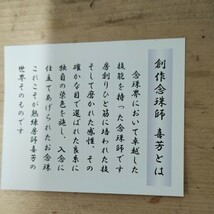 創作念珠師 喜芳とは
念珠界において卓越した
技能を持った念珠師です
房創りひと筋に培われた技
そして磨かれた感性、その
確かな目で選ばれた糸に
独自の染色を施し、入念に
仕立てあげられたお念珠
これこそが熟練房師喜芳の
世界そのものです